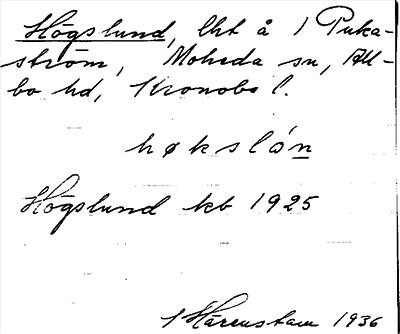 Högslund, lht å 1 Puka-
ström, Moheda sn, All-
bo hd, Kronobs l.
høkslón
Högslund kb 1925
S Härenstam 1936